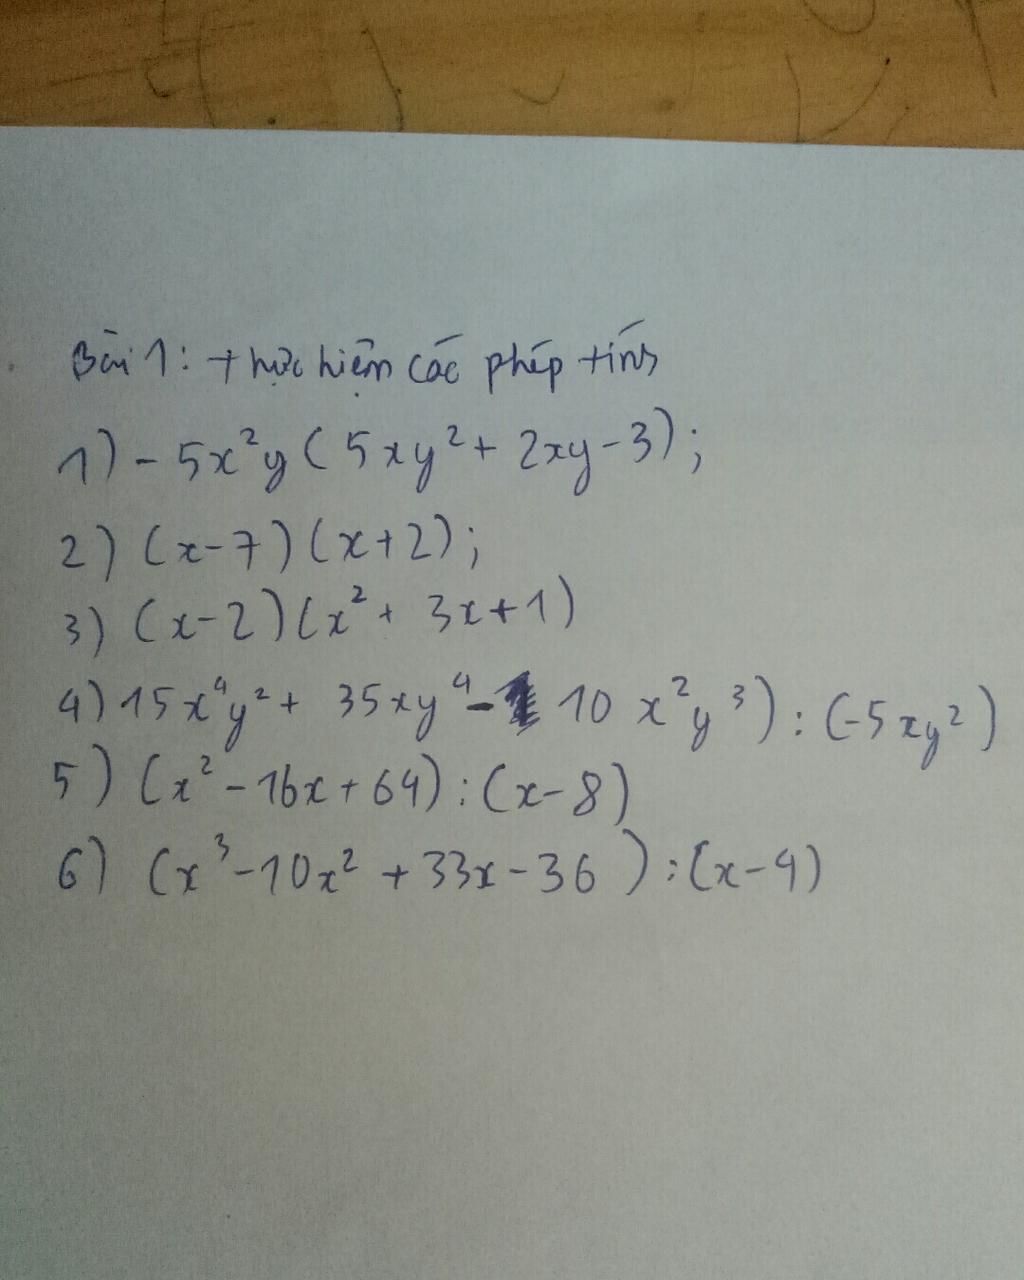 Bài 1: thực hiện các phép tính
1) - 5x²y ( 5xy² + 2xy - 3) ;
2) (x - 7) (x + 2) ;
3) (x - 2) (x² + 3x + 1)
4) 15x⁴y² + 35xy⁴ - 10 x²y³) : (-5xy²)
5) (x² - 16x + 64) : (x - 8)
6) (x³ - 10x² + 33x - 36 ) : (x - 4)